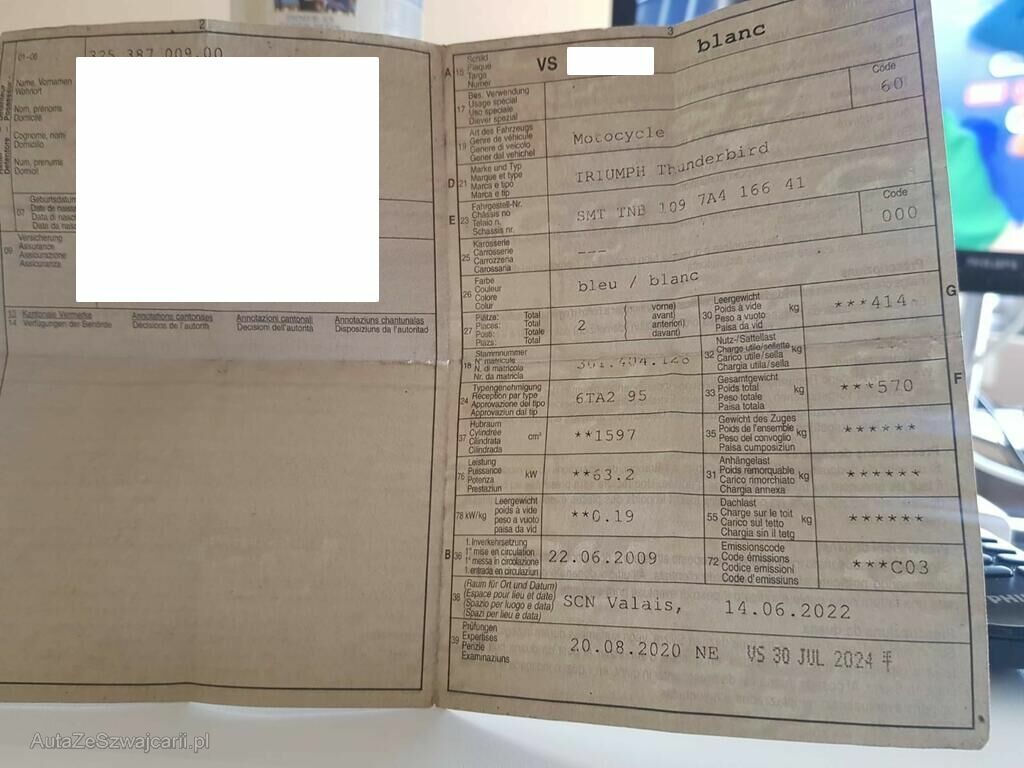 2
01-06 325.387.009.00
Name, Vornamen
Wohnort
Nom, prénoms
Domicile
Cognome, nomi
Domicilio
Nom, prenums
Domicil
07 Geburtsdatum
Date de naiss
Data di nasc
Data da nasc
09 Versicherung
Assurance
Assicurazione
Assicuranza
13 Kantonale Vermerke Annotations cantonales Annotazioni cantonali Annotaziuns chantunalas
14 Verfügungen der Behörde Décisions de l'autorité Decisioni dell'autorità Disposiziuns da l'autoritad
3
A 15 Schild
Plaque
Targa
Numer
VS blanc
17 Bes. Verwendung
Usage spécial
Uso speciale
Diever spezial
Code
60
19 Art des Fahrzeugs
Genre de véhicule
Genere di veicolo
Gener dal vehichel
Motocycle
D 21 Marke und Typ
Marque et type
Marca e tipo
Marca e tip
TRIUMPH Thunderbird
E 23 Fahrgestell-Nr.
Châssis no
Telaio n.
Schassis nr.
SMT TNB 109 7A4 166 41
25 Karosserie
Carrosserie
Carrozzeria
Carossaria
---
Code
000
26 Farbe
Couleur
Colore
Colur
bleu / blanc
27 Plätze: Total
Places: Total
Posti: Totale
Plazs: Total
2
(vorne)
avant)
anteriori)
davant)
G 30 Leergewicht
Poids à vide
Peso a vuoto
Paisa da vid
kg
***414
18 Stammnummer
N° matricule
N. di matricola
Nr. da matricla
32 Nutz-/Sattellast
Charge utile/sellette
Carico utile/sella
Chargia utila/sella
kg
24 Typengenehmigung
Réception par type
Approvazione del tipo
Approvaziun dal tip
6TA2 95
F 33 Gesamtgewicht
Poids total
Peso totale
Paisa totala
kg
***570
37 Hubraum
Cylindrée
Cilindrata
Cilindrada
cm³
**1597
35 Gewicht des Zuges
Poids de l'ensemble
Peso del convoglio
Paisa cumposiziun
kg
******
76 Leistung
Puissance
Potenza
Prestaziun
kW
**63.2
31 Anhängelast
Poids remorquable
Carico rimorchiato
Chargia annexa
kg
******
78 kW/kg Leergewicht
poids à vide
peso a vuoto
paisa da vid
**0.19
55 Dachlast
Charge sur le toit
Carico sul tetto
Chargia sin il tetg
kg
******
B 36 1. Inverkehrsetzung
1re mise en circulation
1a messa in circolazione
1. entrada en circulaziun
22.06.2009
72 Emissionscode
Code émissions
Codice emissioni
Code d'emissiuns
***C03
38 (Raum für Ort und Datum)
(Espace pour lieu et date)
(Spazio per luogo e data)
(Spazi per lieu e data)
SCN Valais, 14.06.2022
39 Prüfungen
Expertises
Perizie
Examinaziuns
20.08.2020 NE VS 30 JUL 2024
PHILIPS
AutaZeSzwajcarii.pl